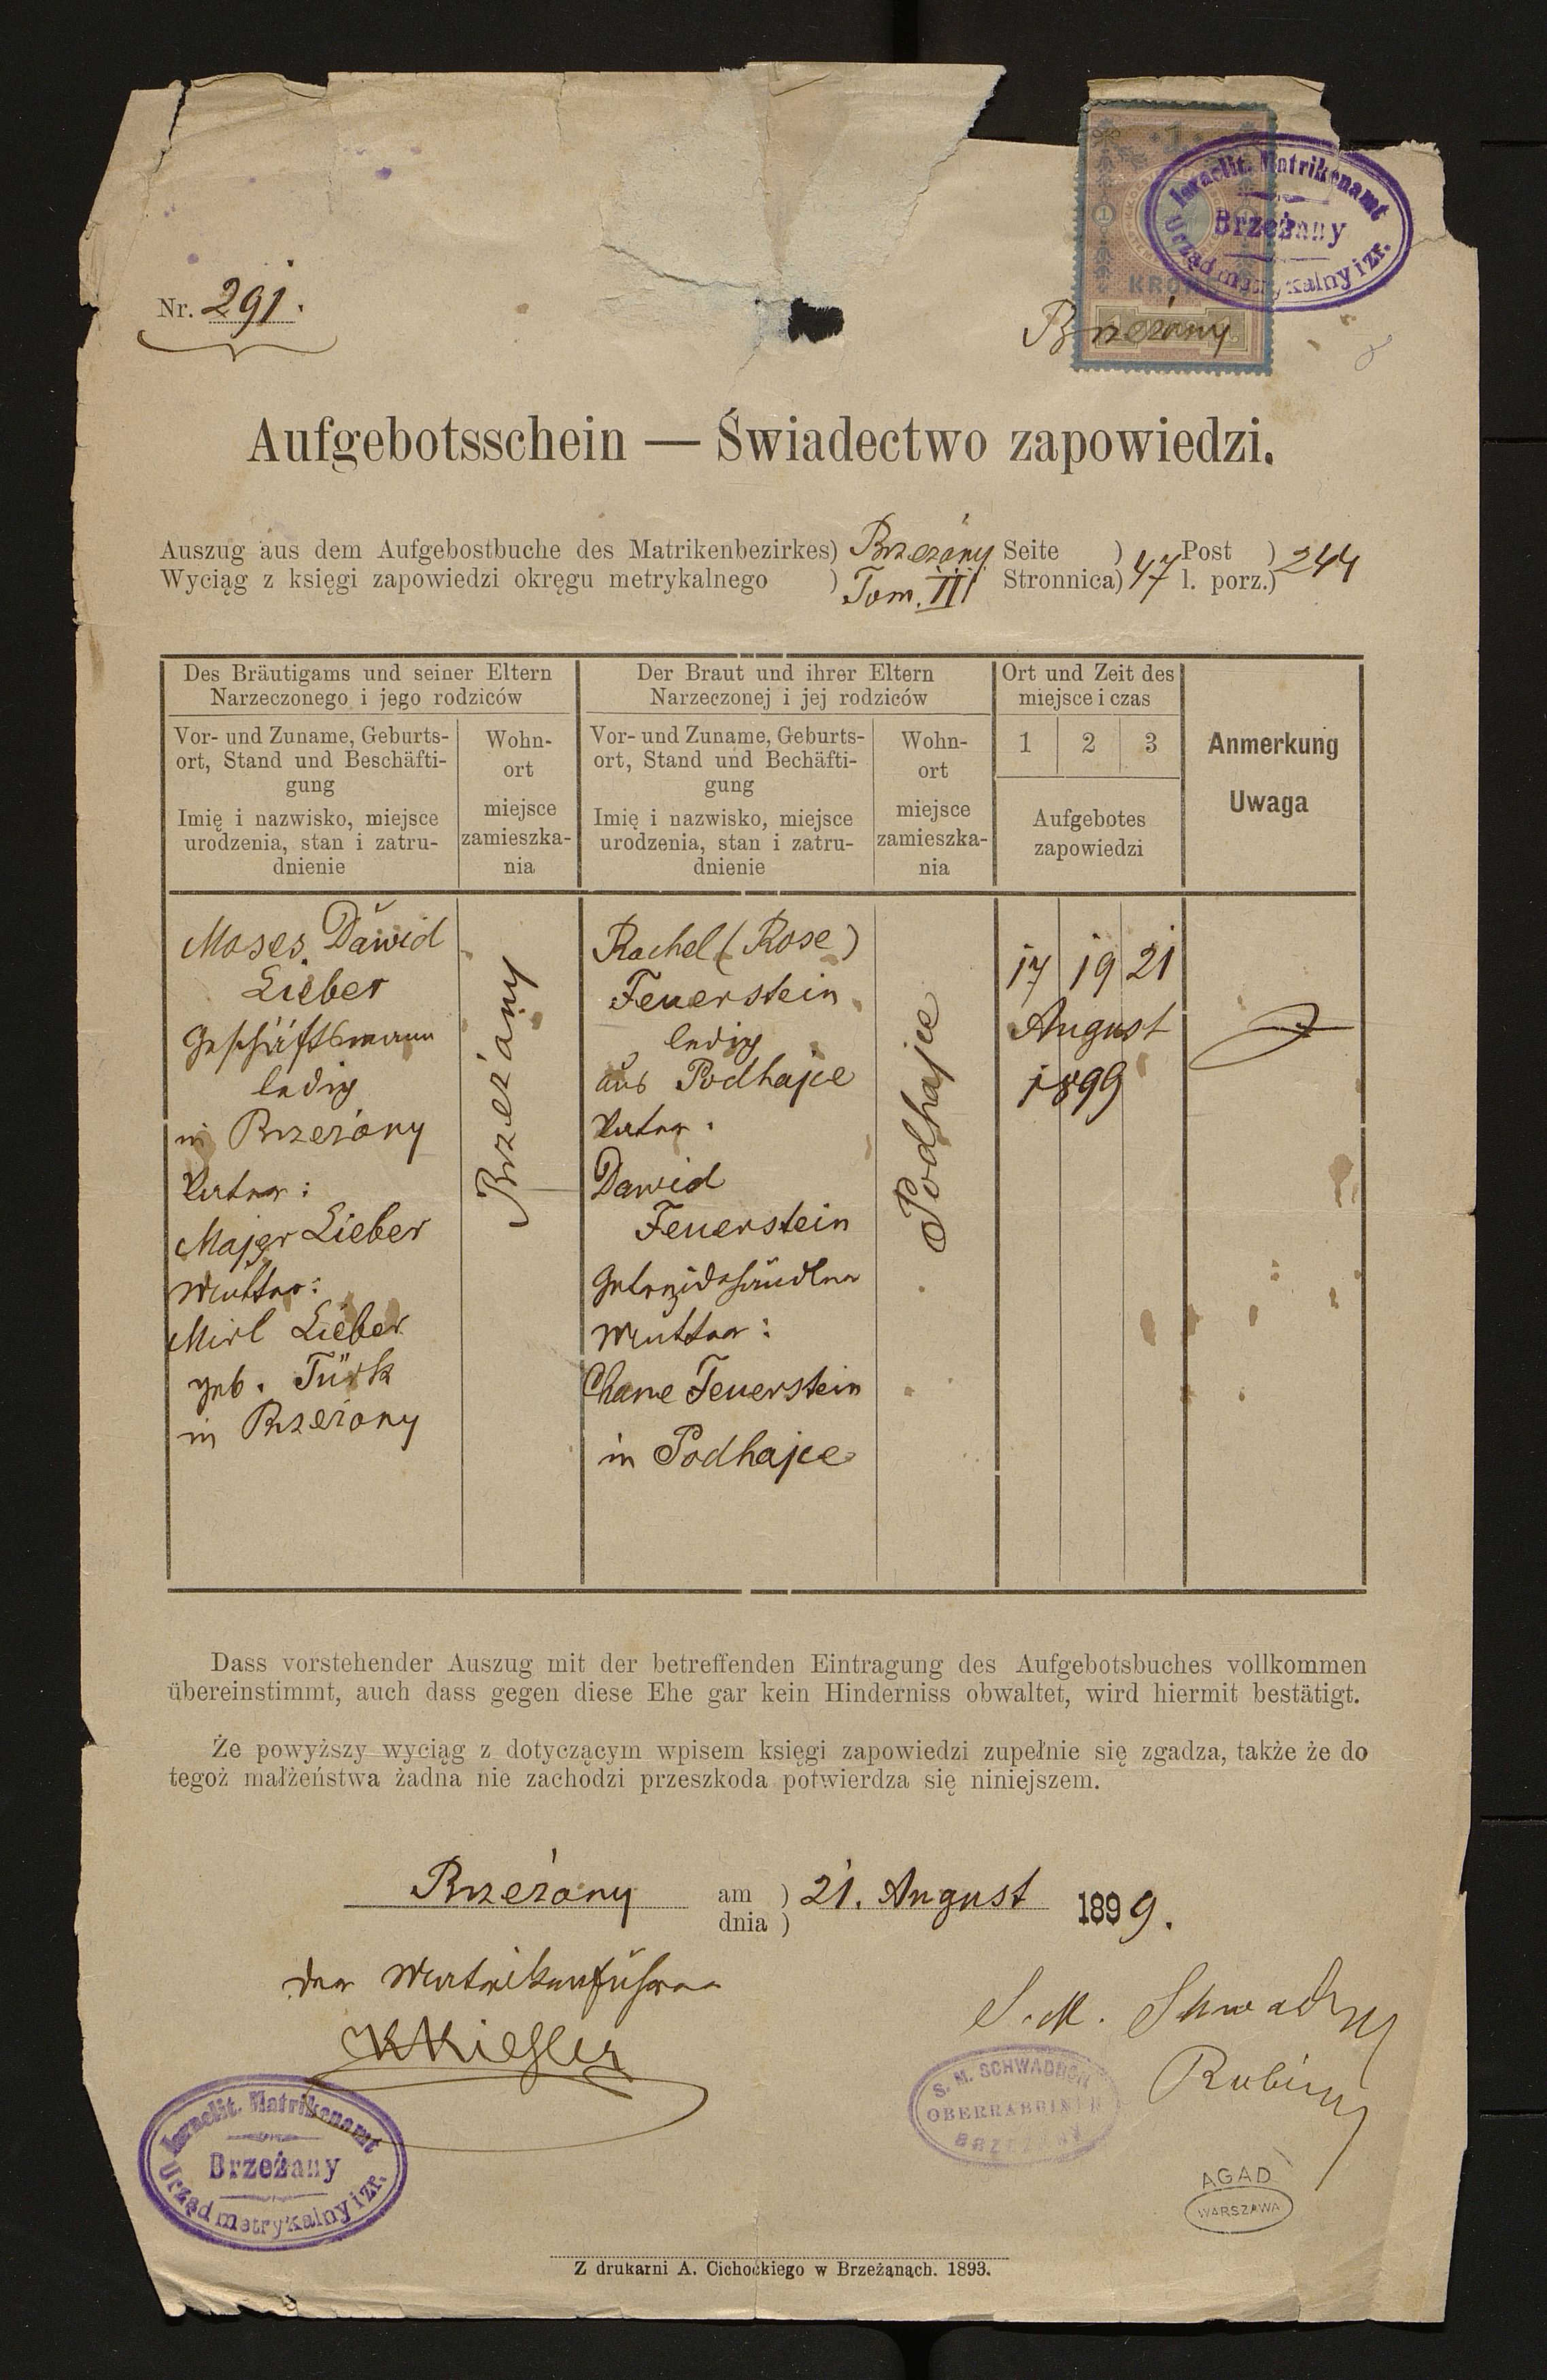 1
KRONE
Israelit. Matrikenamt
Brzeżany
Urząd metrykalny izr.
Nr. 291.
Brzeżany
Aufgebotsschein — Świadectwo zapowiedzi.
Auszug aus dem Aufgebostbuche des Matrikenbezirkes) Brzeżany Seite ) 47 Post ) 244
Wyciąg z księgi zapowiedzi okręgu metrykalnego ) Tom. III Stronnica) l. porz.)
Des Bräutigams und seiner Eltern
Narzeczonego i jego rodziców
Vor- und Zuname, Geburts-
ort, Stand und Beschäfti-
gung
Imię i nazwisko, miejsce
urodzenia, stan i zatru-
dnienie
Wohn-
ort
miejsce
zamieszka-
nia
Der Braut und ihrer Eltern
Narzeczonej i jej rodziców
Vor- und Zuname, Geburts-
ort, Stand und Bechäfti-
gung
Imię i nazwisko, miejsce
urodzenia, stan i zatru-
dnienie
Wohn-
ort
miejsce
zamieszka-
nia
Ort und Zeit des
miejsce i czas
1 2 3
Aufgebotes
zapowiedzi
Anmerkung
Uwaga
Moses Dawid
Lieber
Geschäftsmann
ledig
in Brzeżany
Vater:
Majer Lieber
Mutter:
Mirl Lieber
geb. Türk
in Brzeżany
Brzeżany
Rachel (Rose)
Feuerstein
ledig
aus Podhajce
Vater:
Dawid
Feuerstein
Getreidehändler
Mutter:
Chane Feuerstein
in Podhajce
Podhajce
17 19 21
August
1899
Dass vorstehender Auszug mit der betreffenden Eintragung des Aufgebotsbuches vollkommen
übereinstimmt, auch dass gegen diese Ehe gar kein Hinderniss obwaltet, wird hiermit bestätigt.
Że powyższy wyciąg z dotyczącym wpisem księgi zapowiedzi zupełnie się zgadza, także że do
tegoż małżeństwa żadna nie zachodzi przeszkoda potwierdza się niniejszem.
Brzeżany am ) 21. August 1899.
dnia )
Der Matrikenführer
S. M. Schwadron
Rabiner
S. M. SCHWADRON
OBERRABBINER
BRZEŻANY
Israelit. Matrikenamt
Brzeżany
Urząd metrykalny izr.
AGAD
WARSZAWA
Z drukarni A. Cichockiego w Brzeżąnąch. 1893.